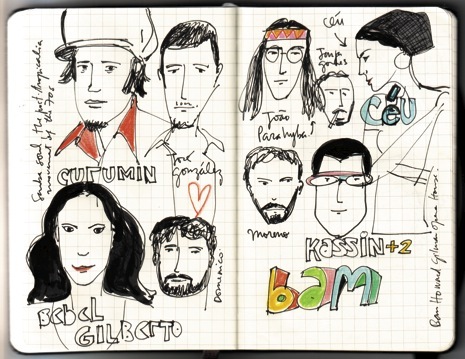 samba soul the
movement of the 70s
CURUMIN
José
gonzález
BEBEL
GILBERTO
Domenico
CéU
João
Parahyba
CéU
moreno
KASSIN +2
bam
Howard Gilman Opera House.